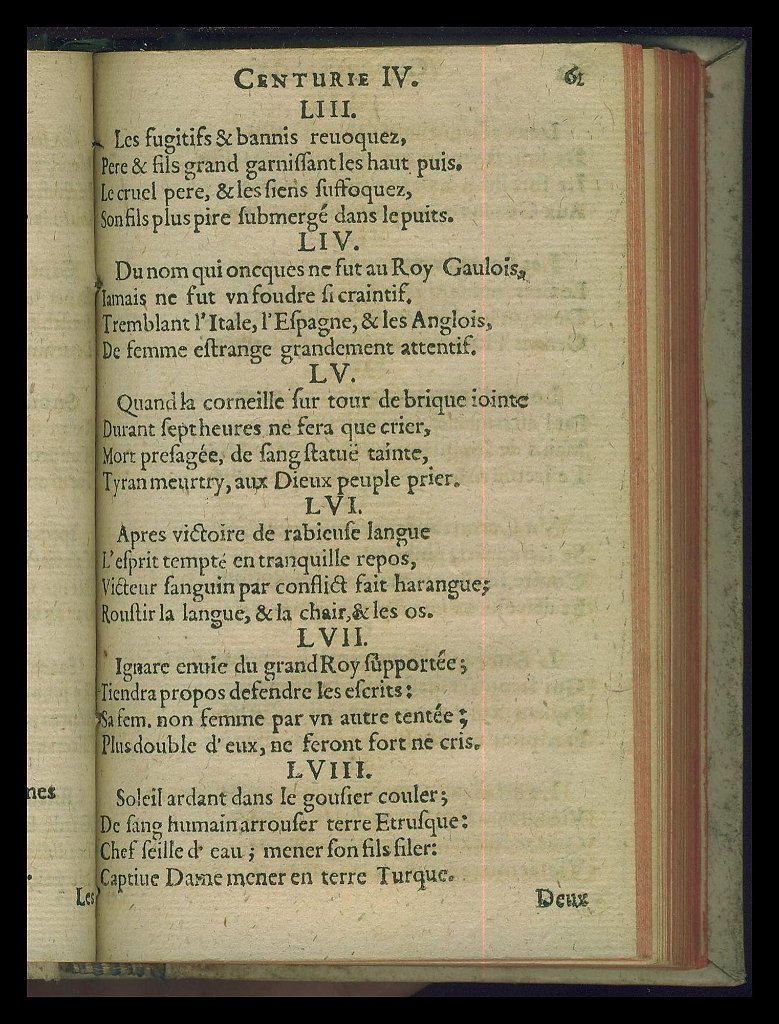 mes
Les
CENTURIE IV. 61
LIII.
Les fugitifs & bannis reuoquez,
Pere & fils grand garniſſant les haut puis.
Le cruel pere, & les ſiens ſuffoquez,
Son fils plus pire ſubmergé dans le puits.
LIV.
Du nom qui oncques ne fut au Roy Gaulois,
Iamais ne fut vn foudre ſi craintif.
Tremblant l'Itale, l'Eſpagne, & les Anglois,
De femme eſtrange grandement attentif.
LV.
Quand la corneille ſur tour de brique iointe
Durant ſept heures ne fera que crier,
Mort preſagée, de ſang ſtatuë tainte,
Tyran meurtry, aux Dieux peuple prier.
LVI.
Apres victoire de rabieuſe langue
L'eſprit tempté en tranquille repos,
Victeur ſanguin par conflict fait harangue;
Rouſtir la langue, & la chair, & les os.
LVII.
Ignare enuie du grand Roy ſupportée;
Tiendra propos defendre les eſcrits:
Sa fem. non femme par vn autre tentée;
Plus double d'eux, ne feront fort ne cris.
LVIII.
Soleil ardant dans le goſier couler;
De ſang humain arrouſer terre Etruſque:
Chef ſeille d'eau; mener ſon fils filer:
Captiue Dame mener en terre Turque.
Deux